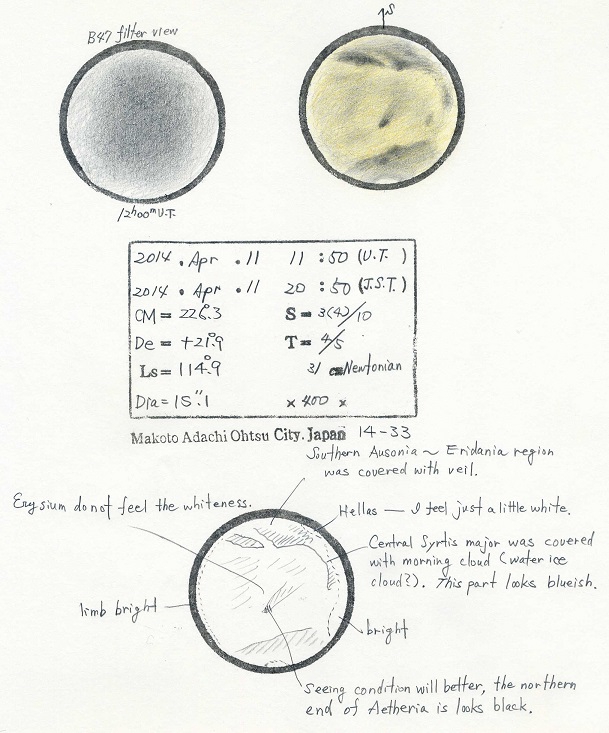 B47 filter view
↑S
12h00m U.T.
2014 . Apr . 11 11 : 50 (U.T.)
2014 . Apr . 11 20 : 50 (J.S.T.)
CM = 226.°3 S = 3(4)/10
De = +21.°9 T = 4/5
Ls = 114.°9 31 cm Newtonian
Dia = 15."1 × 400 ×
Makoto Adachi Ohtsu City. Japan 14-33
Southern Ausonia ~ Eridania region
was covered with veil.
Erysium do not feel the whiteness.
Hellas — I feel just a little white.
Central Syrtis major was covered
with morning cloud (water ice
cloud?). This part looks blueish.
limb bright
bright
Seeing condition will better, the northern
end of Aetheria is looks black.